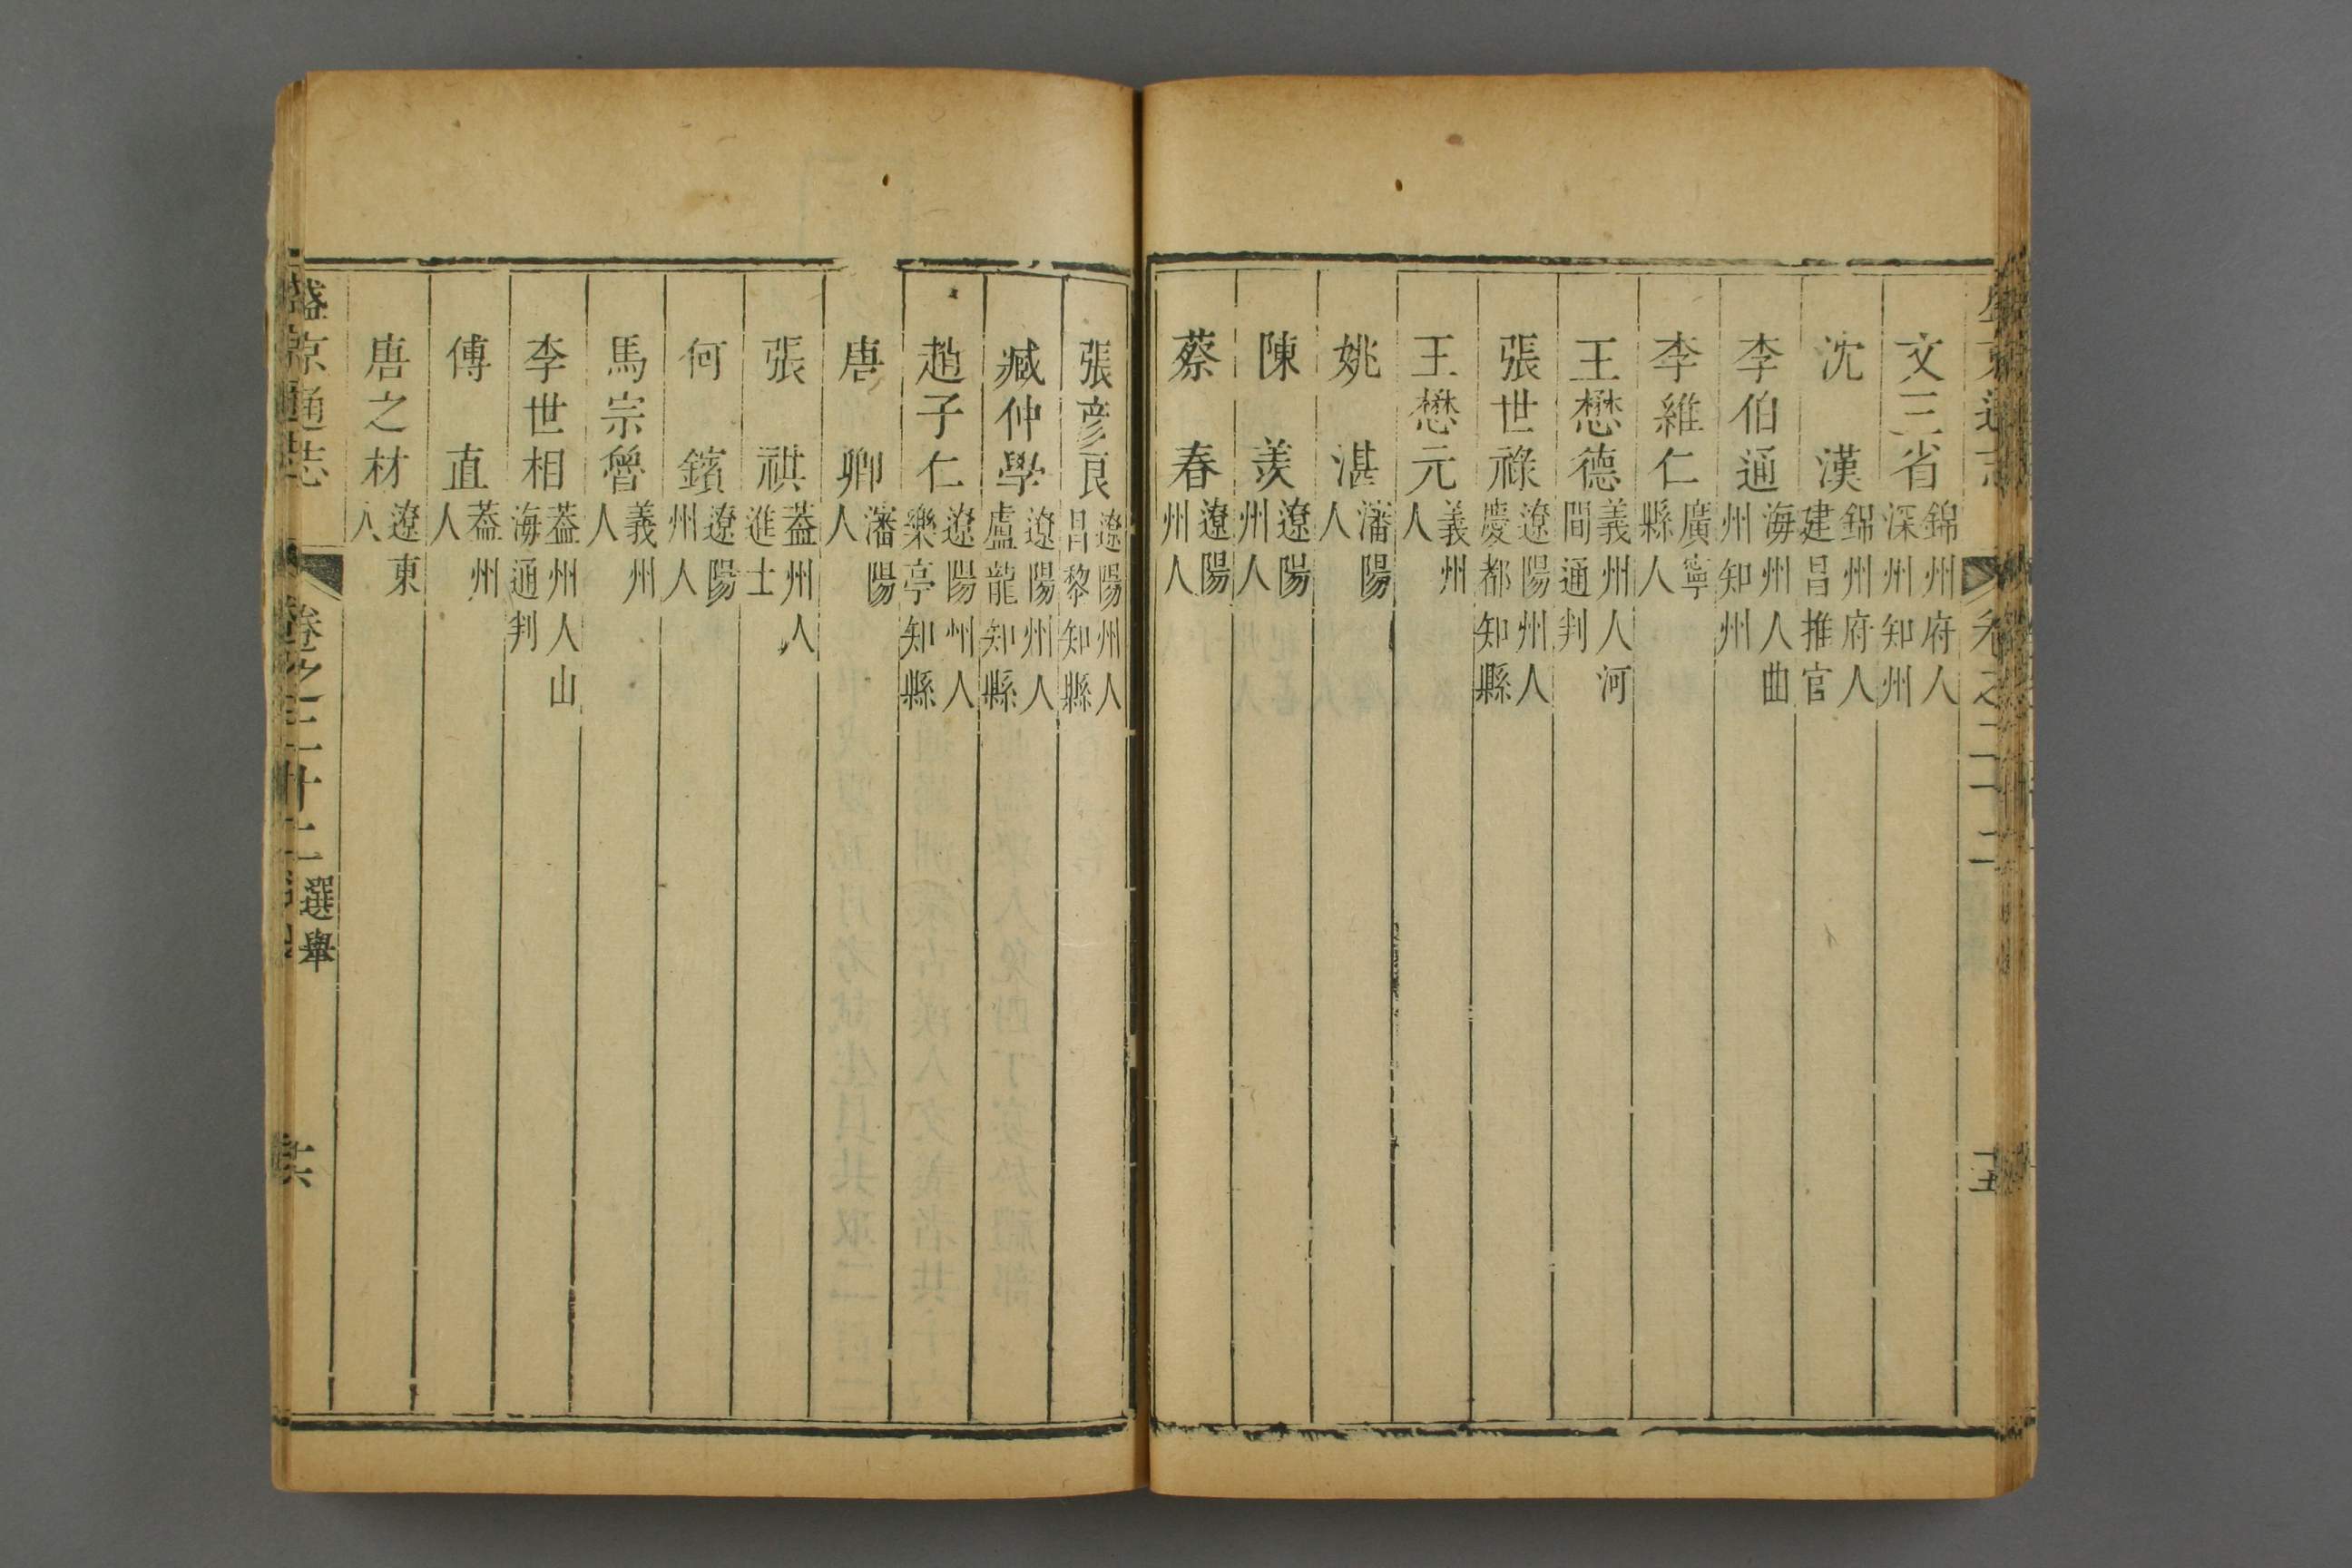 文三省錦州府人深州知州
沈漢錦州府人建昌推官
李伯通海州人曲州知州
李維仁廣寧縣人
王懋德義州人河間通判
張世祿遼陽州人慶都知縣
王懋元義州人
姚湛瀋陽人
陳羨遼陽州人
蔡春遼陽州人
張彥良遼陽州人昌黎知縣
臧仲學遼陽州人盧龍知縣
趙子仁遼陽州人樂亭知縣
唐卿瀋陽人
張祺葢州人進士
何鑌遼陽州人
馬宗魯義州人
李世相葢州人山海通判
傅直葢州人
唐之材遼東人
盛京通志
卷之二十二
選舉